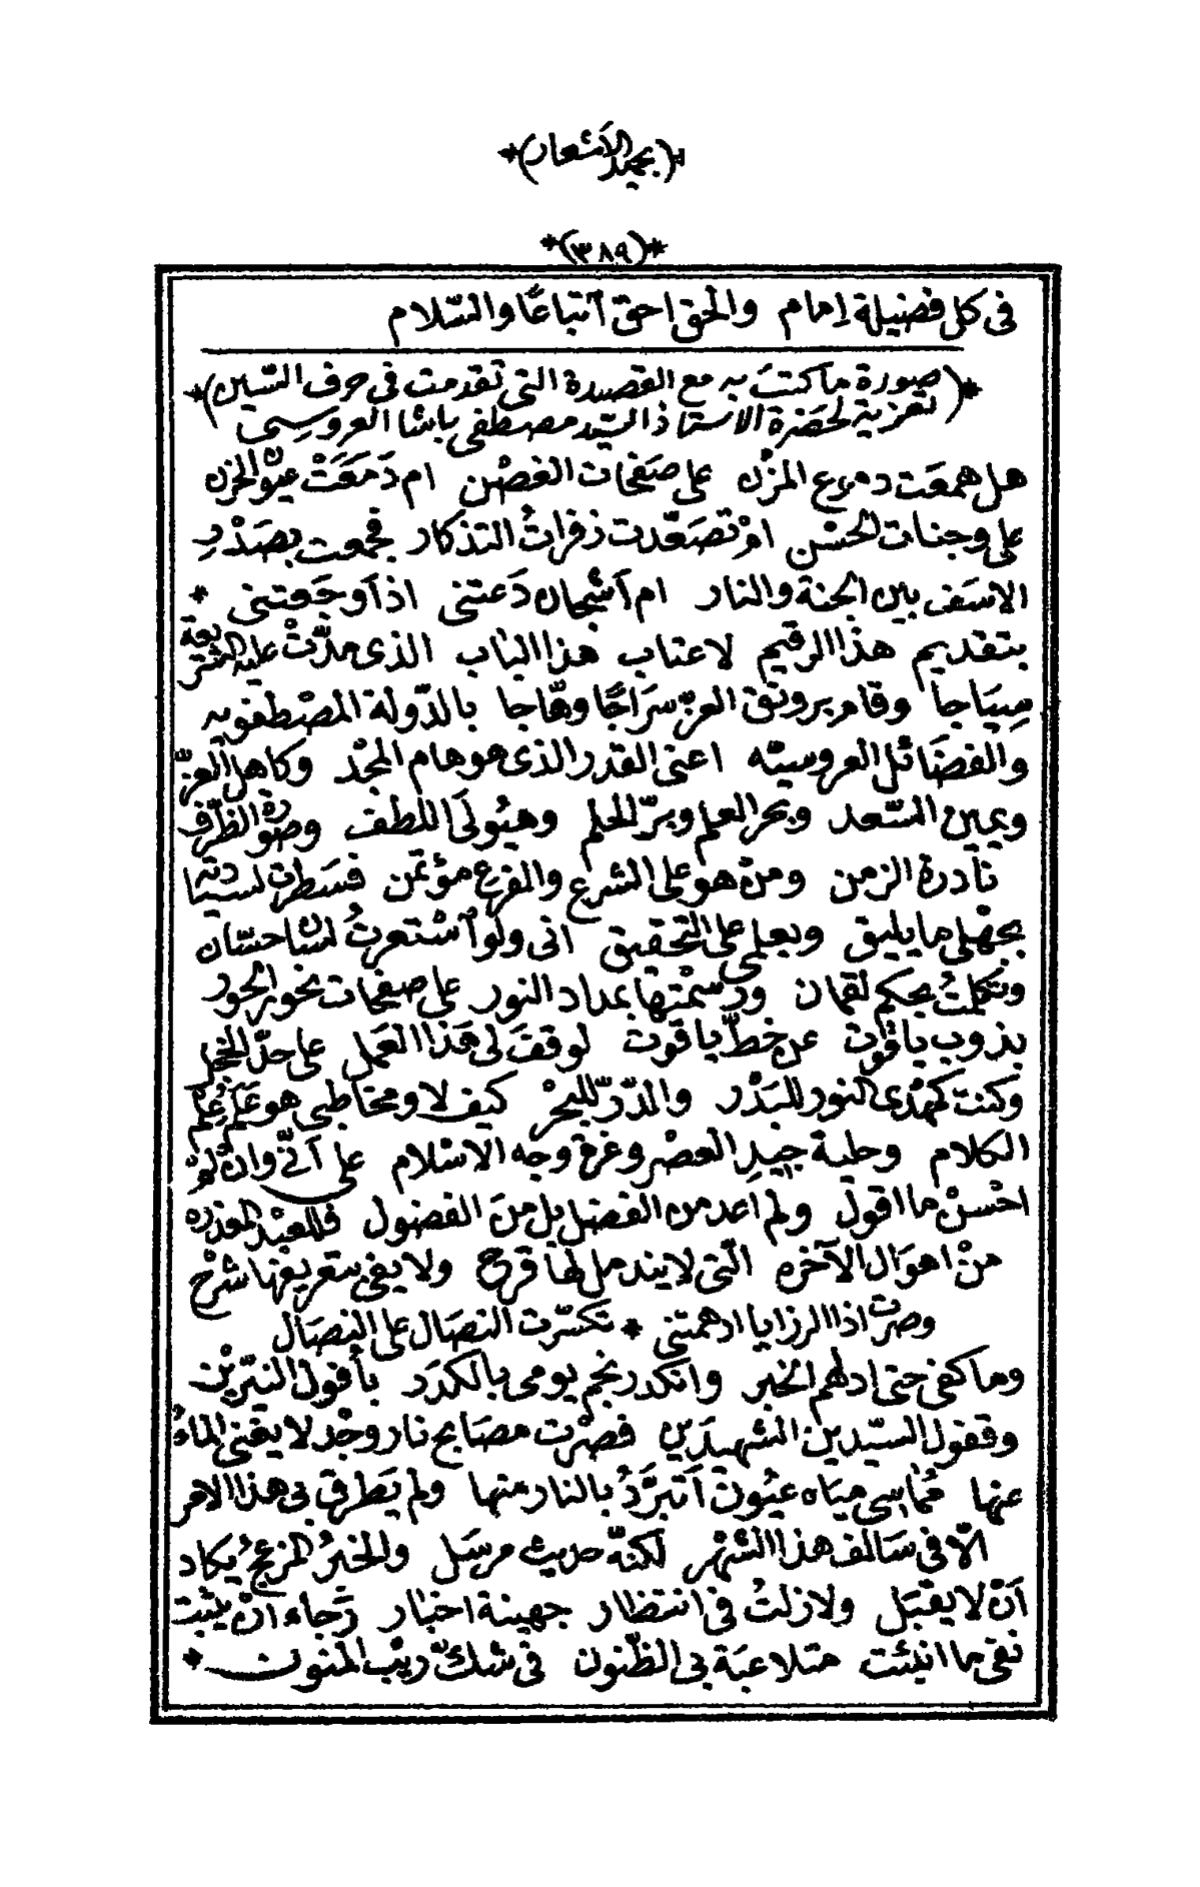 *(بحيد الأشعار)*
*(٣٨٩)*
فى كل فضيلة إمام والحق احق اتباعًا والسّلام
*(صورة ما كتبَ به مع القصيدة التى تقدمت فى حرف السّين)*
(تعزية لحضرة الاستاذ السّيد مصطفى باشا العروسى)
هل همعَت دموع المزْن على صفحات الغصْن ام دَمَعَتْ عيون الحزن
على وجنات الحسْن امْ تصَعّدت زفراتُ التذكار فجمعت بصَدْرِ
الاسَف بين الجنة والنار ام اَشْجان دَعتنى اذ اَوجَعتنى *
بتقديم هذا الرقيم لاعتاب هذا الباب الذى مدّتْ عليه الشريعة
سِيَاجا وقام برونق العزّ سرَاجًا وهّاجا بالدّولة المصْطفويه
والفضَائل العروسيّه اعنى القدر الذى هو هام المجْد وكاهل العزّ
ويمين السّعد وبحر العلم وبرّ الحلم وهيُولَى اللطف وصورة الظرْف
نادرة الزمن ومنْ هو على الشرع والفرع مؤتمن فسَطرت لسيادته
بجهْلى ما يليق وبعلمى على التحقيق انى ولو اسْتعرتُ لسَان حسّان
وتكلمتُ بحكم لقمان ورسمْتها بمداد النور على صفحات نحور الحور
بذوب ياقوت عن خطّ ياقوت لوقفَ لى هَذا العَمل على حدّ الخجل
وكنت كمهْدى النور للبَدْر والدّرّ للبحْر كيف لا ومخاطبى هو عَلَم عِلْم
الكلام وحلية جِيدِ العصْر وغرة وجه الاسْلام على اَنّى وان لمْ
احْسنْ ما اقول ولم اعد من الفضل بل منَ الفضول فللعبْد المعذره
منْ اهوَال الآخره الّتى لا يندمل لها قرح ولا يفى بتعريفها شرْح
وصرت اذا الرزايا ادهمتنى * تكسّرت النصَال على النصَال
وما كفى حتى ادلهم الخبر وانكدر نجم يومى بالكدَر بأفول النيّريْن
وقفول السيّدين الشهيدَين فصِرْت مصَابح نار وجْد لا يغنى الماءُ
عنها مُماسى ميَاه عيُون اَتبرّدُ بالنار منها ولم يَطرق بى هذا الامر
الّا فى سَالف هذا الشهْر لكنّه حديث مرسَل والخبرُ المزعجُ يكاد
اَنْ لا يقبَل ولا زلتُ فى انتظار جهينة اخبار رَجاء انْ يثبت
نفى ما انبئت متلاعبَة بى الظّنون فى شكّ ريْب المنون *